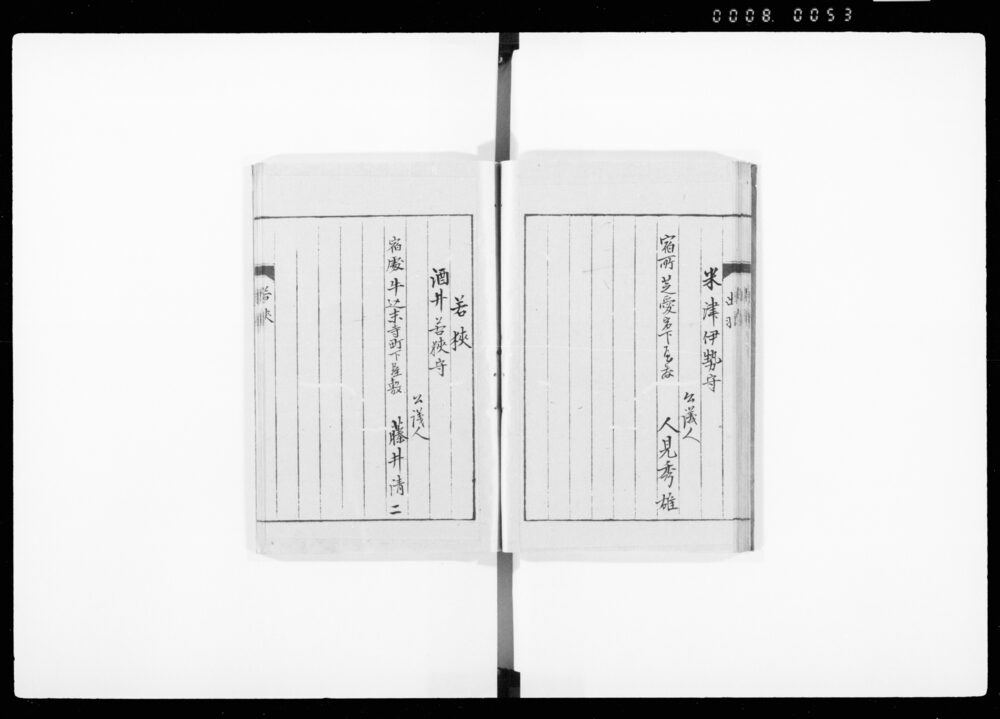 0008. 0053
出羽
米津伊勢守
公議人
宿所芝愛宕下
人見秀雄
若狭
酒井若狭守
公議人
宿處牛込末寺町下屋敷
藤井清二
若狭